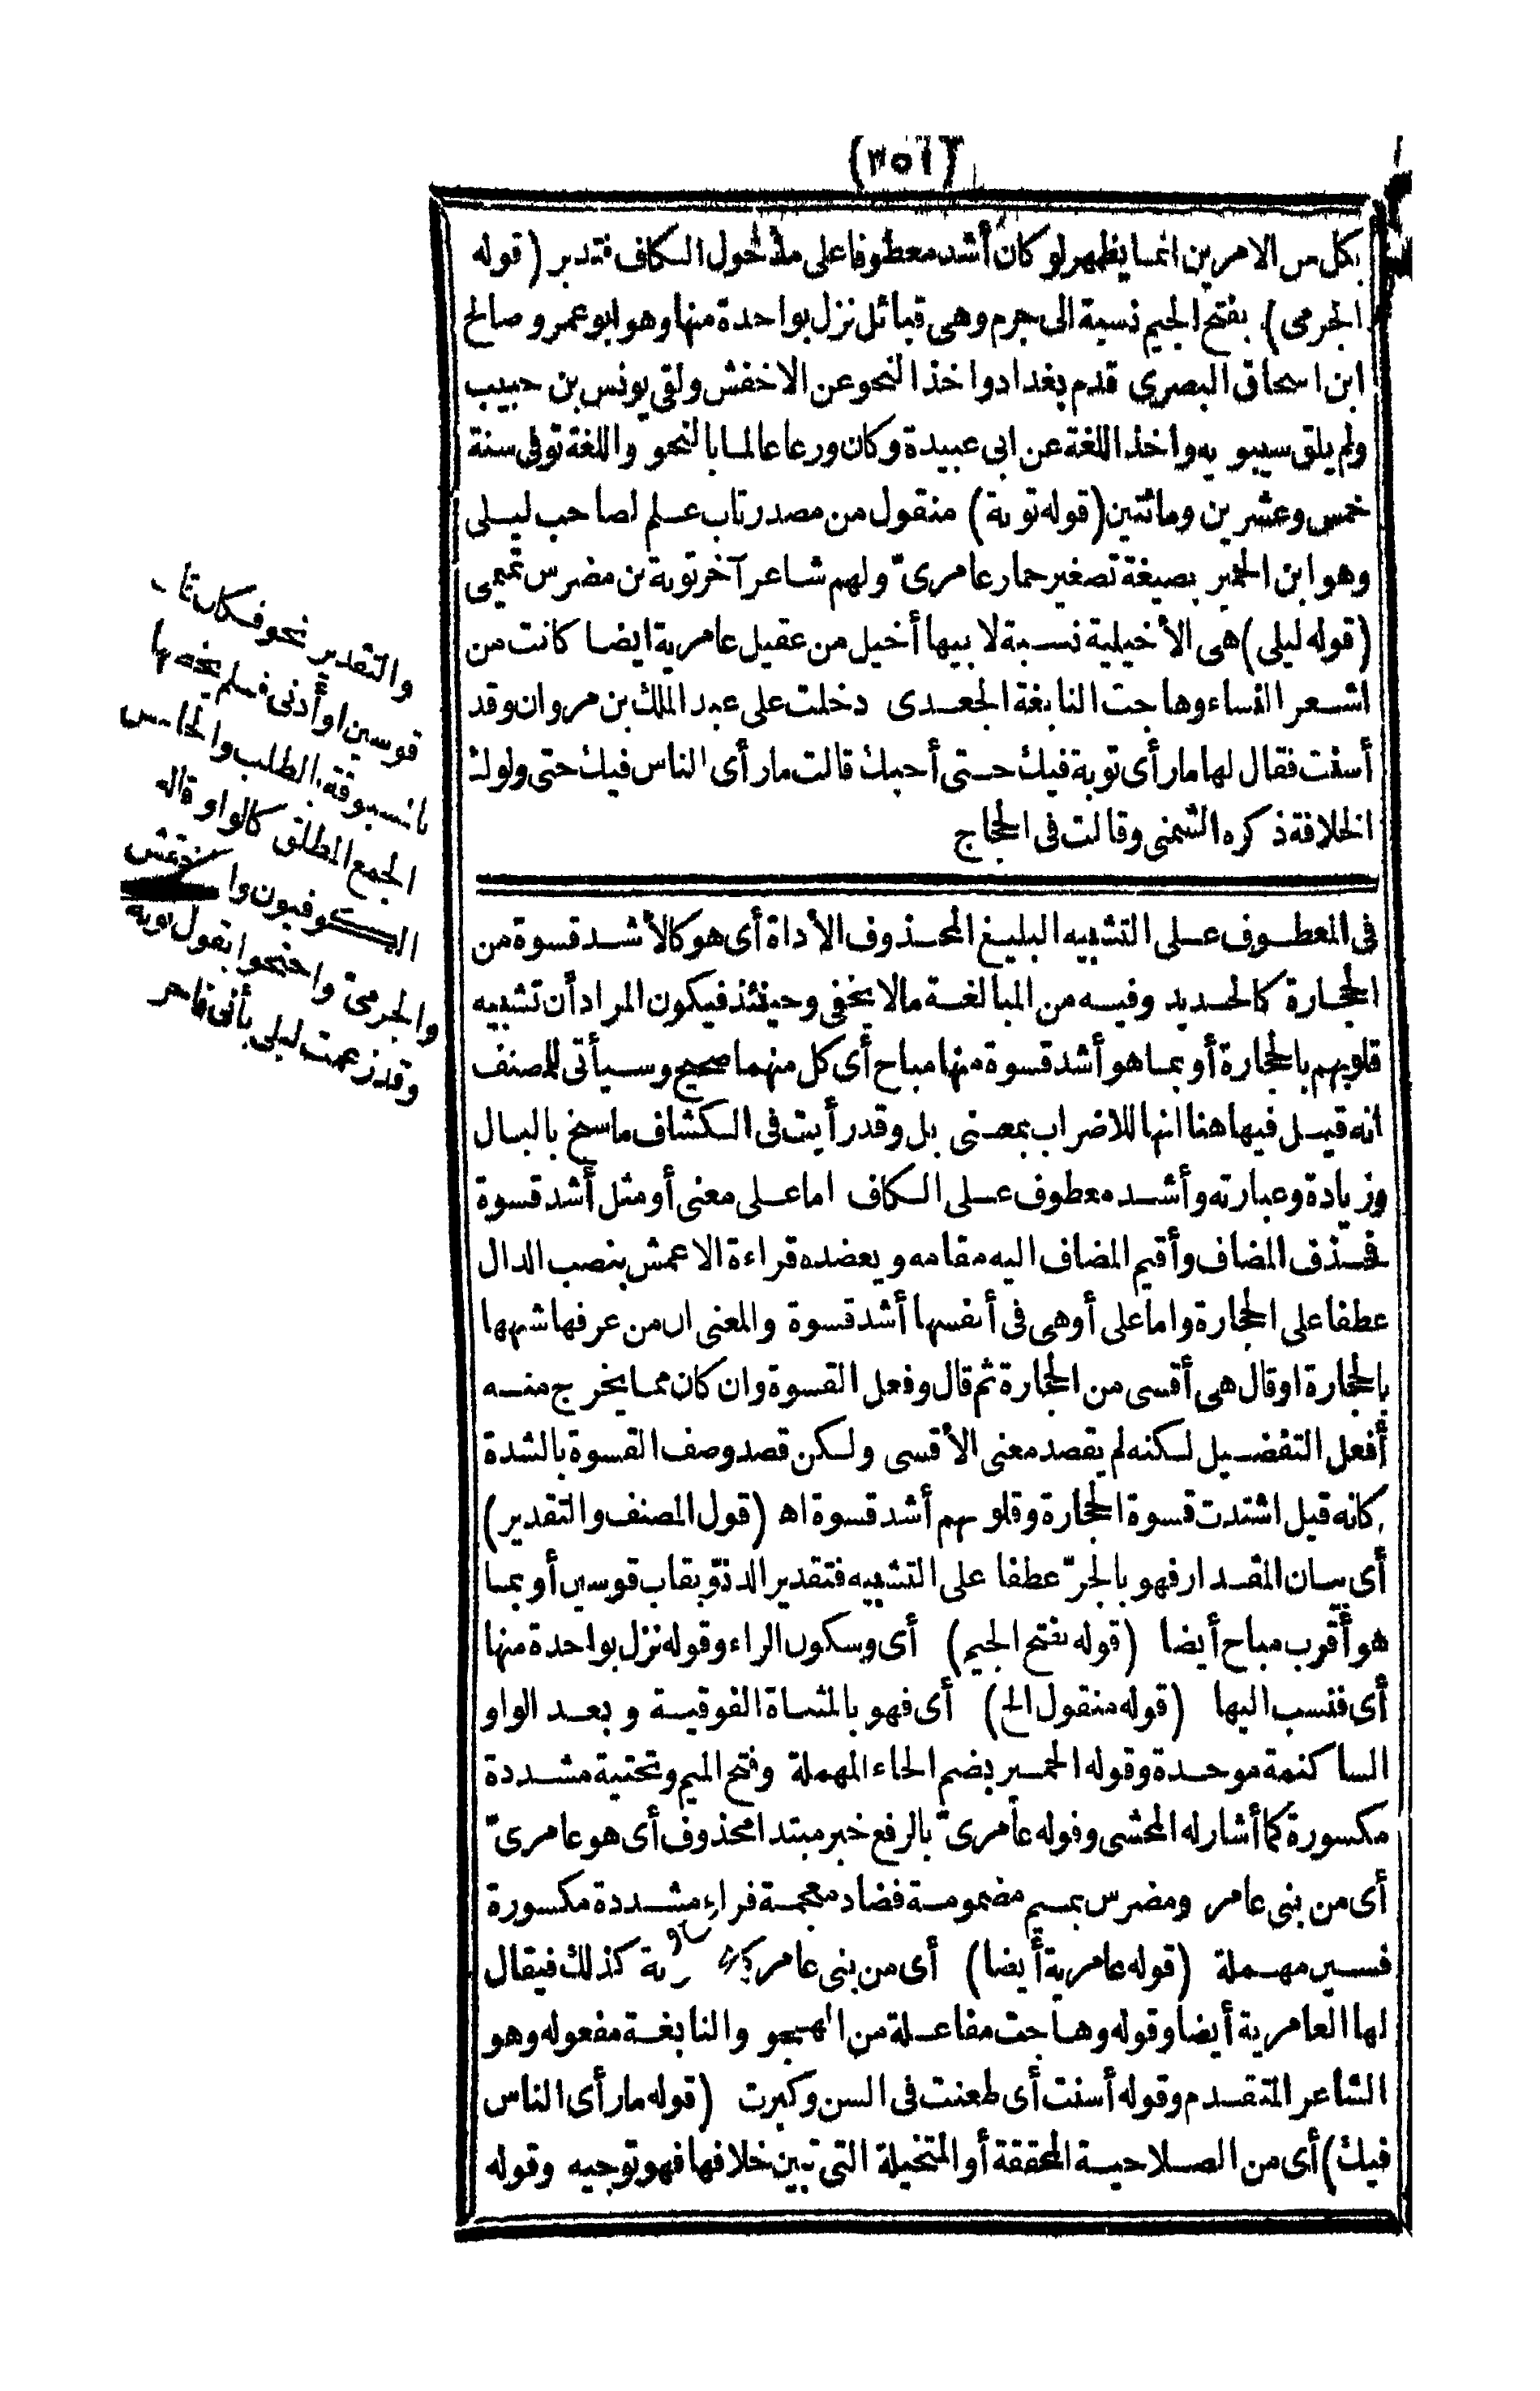 (٣٥٦)
بكل من الامرين انما يظهر لو كان أشد معطوفا على مدخول الكاف فتدبر (قوله
الجرمى) بفتح الجيم نسبة الى جرم وهى قبائل نزل بواحدة منها وهو ابو عمرو صالح
ابن اسحاق البصرى قدم بغداد واخذ النحو عن الاخفش ولقى يونس بن حبيب
ولم يلق سيبو يه واخذ اللغة عن ابى عبيدة وكان ورعا عالما بالنحو واللغة توفى سنة
خمس وعشرين ومائتين (قوله توبة) منقول من مصدر تاب علم لصاحب ليلى
وهو ابن الحمير بصيغة تصغير حمار عامرىّ ولهم شاعر آخر توبة بن مضرس تميمى
(قوله ليلى) هى الأخيلية نسبة لابيها أخيل من عقيل عامرية ايضا كانت من
اشعر النساء وهاجت النابغة الجعدى دخلت على عبد الملك بن مروان وقد
أسنت فقال لها ما رأى توبة فيك حتى أحبك قالت ما رأى الناس فيك حتى ولوك
الخلافة ذكره الشمنى وقالت فى الحجاج
والتقدير نحو فكان قاب
قوسين او أدنى فلم يخصها
بالمسبوقة بالطلب والخامس
الجمع المطلق كالواو قاله
الكوفيون والاخفش
والجرمىّ واحتجوا بقول توبة
وقد زعمت ليلى بأنى فاجر
فى المعطوف على التشبيه البليغ المحذوف الأداة أى هو كالأشد قسوة من
الحجارة كالحديد وفيه من المبالغة ما لا يخفى وحينئذ فيكون المراد أن تشبيه
قلوبهم بالحجارة أو بما هو أشد قسوة منها مباح أى كل منهما صحيح وسيأتى للمصنف
انه قيل فيها هنا انها للاضراب بمعنى بل وقد رأيت فى الكشاف ما سنح بالبال
وزيادة وعبارته وأشد معطوف على الكاف اما على معنى أو مثل أشد قسوة
فحذف المضاف وأقيم المضاف اليه مقامه ويعضده قراءة الاعمش بنصب الدال
عطفا على الحجارة واما على أو هى فى أنفسها أشد قسوة والمعنى ان من عرفها شبهها
بالحجارة او قال هى أقسى من الحجارة ثم قال وفعل القسوة وان كان مما يخرج منه
أفعل التفضيل لكنه لم يقصد معنى الأقسى ولكن قصد وصف القسوة بالشدة
كانه قيل اشتدت قسوة الحجارة وقلوبهم أشد قسوة اه (قول المصنف والتقدير)
أى بيان المقدار فهو بالجرّ عطفا على التشبيه فتقدير الدنوّ بقاب قوسين أو بما
هو أقرب مباح أيضا (قوله بفتح الجيم) أى وسكون الراء وقوله نزل بواحدة منها
أى فنسب اليها (قوله منقول الخ) أى فهو بالمثناة الفوقية وبعد الواو
الساكنة موحدة وقوله الحمير بضم الحاء المهملة وفتح الميم وتحتية مشددة
مكسورة كما أشار له المحشى وقوله عامرىّ بالرفع خبر مبتدا محذوف أى هو عامرىّ
أى من بنى عامر ومضرس بميم مضمومة فضاد معجمة فراء مشددة مكسورة
فسين مهملة (قوله عامرية أيضا) أى من بنى عامر كذلك فيقال
لها العامرية أيضا وقوله وهاجت مفاعلة من الهجو والنابغة مفعوله وهو
الشاعر المتقدم وقوله أسنت أى طعنت فى السن وكبرت (قوله ما رأى الناس
فيك) أى من الصلاحية المحققة أو المتخيلة التى تبين خلافها فهو توجيه وقوله